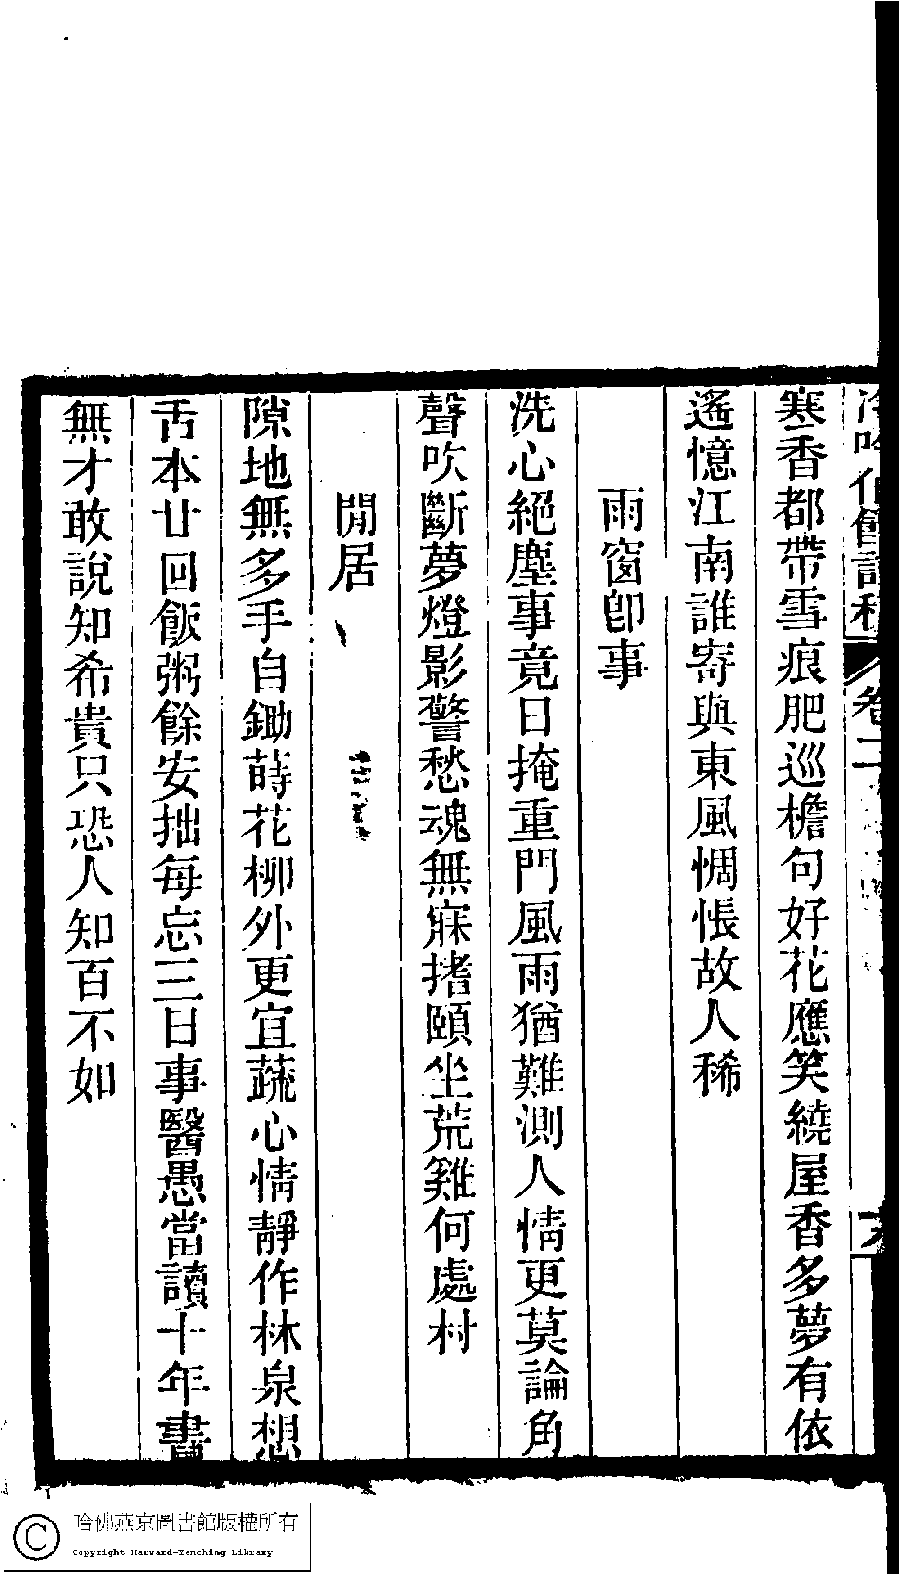 卷二
寒香都帶雪痕肥巡檐句好花應笑繞屋香多夢有依
遙憶江南誰寄與東風惆悵故人稀
雨窗卽事
洗心絕塵事竟日掩重門風雨猶難測人情更莫論角
聲吹斷夢燈影警愁魂無寐搘頤坐荒雞何處村
閒居
隙地無多手自鋤蒔花栁外更宜蔬心情靜作林泉想
舌本廿回飯粥餘安拙每忘三日事醫愚當讀十年書
無才敢說知希貴只恐人知百不如
哈佛燕京圖書館版權所有
Copyright Harvard-Yenching Library